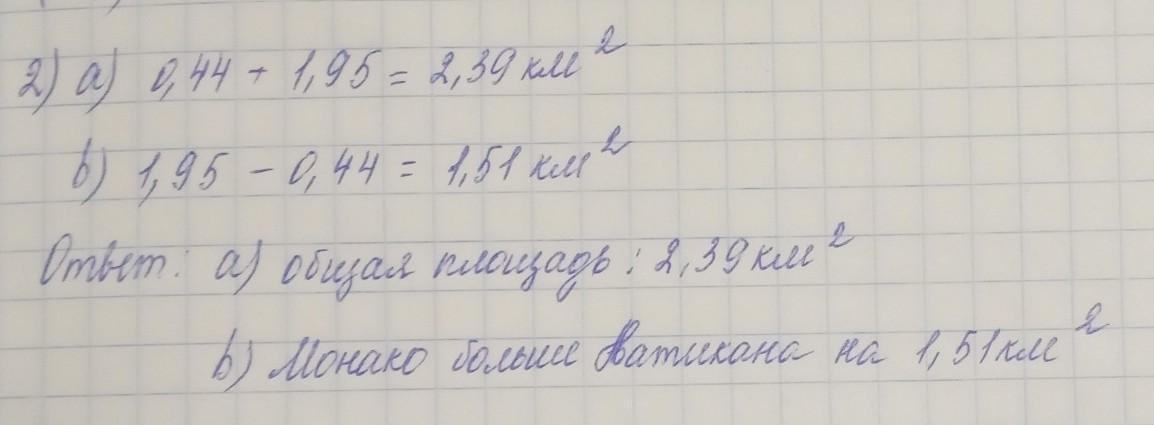 2) a) 0,44 + 1,95 = 2,39 км²
b) 1,95 - 0,44 = 1,51 км²
Ответ: a) общая площадь: 2,39 км²
b) Монако больше Ватикана на 1,51 км²